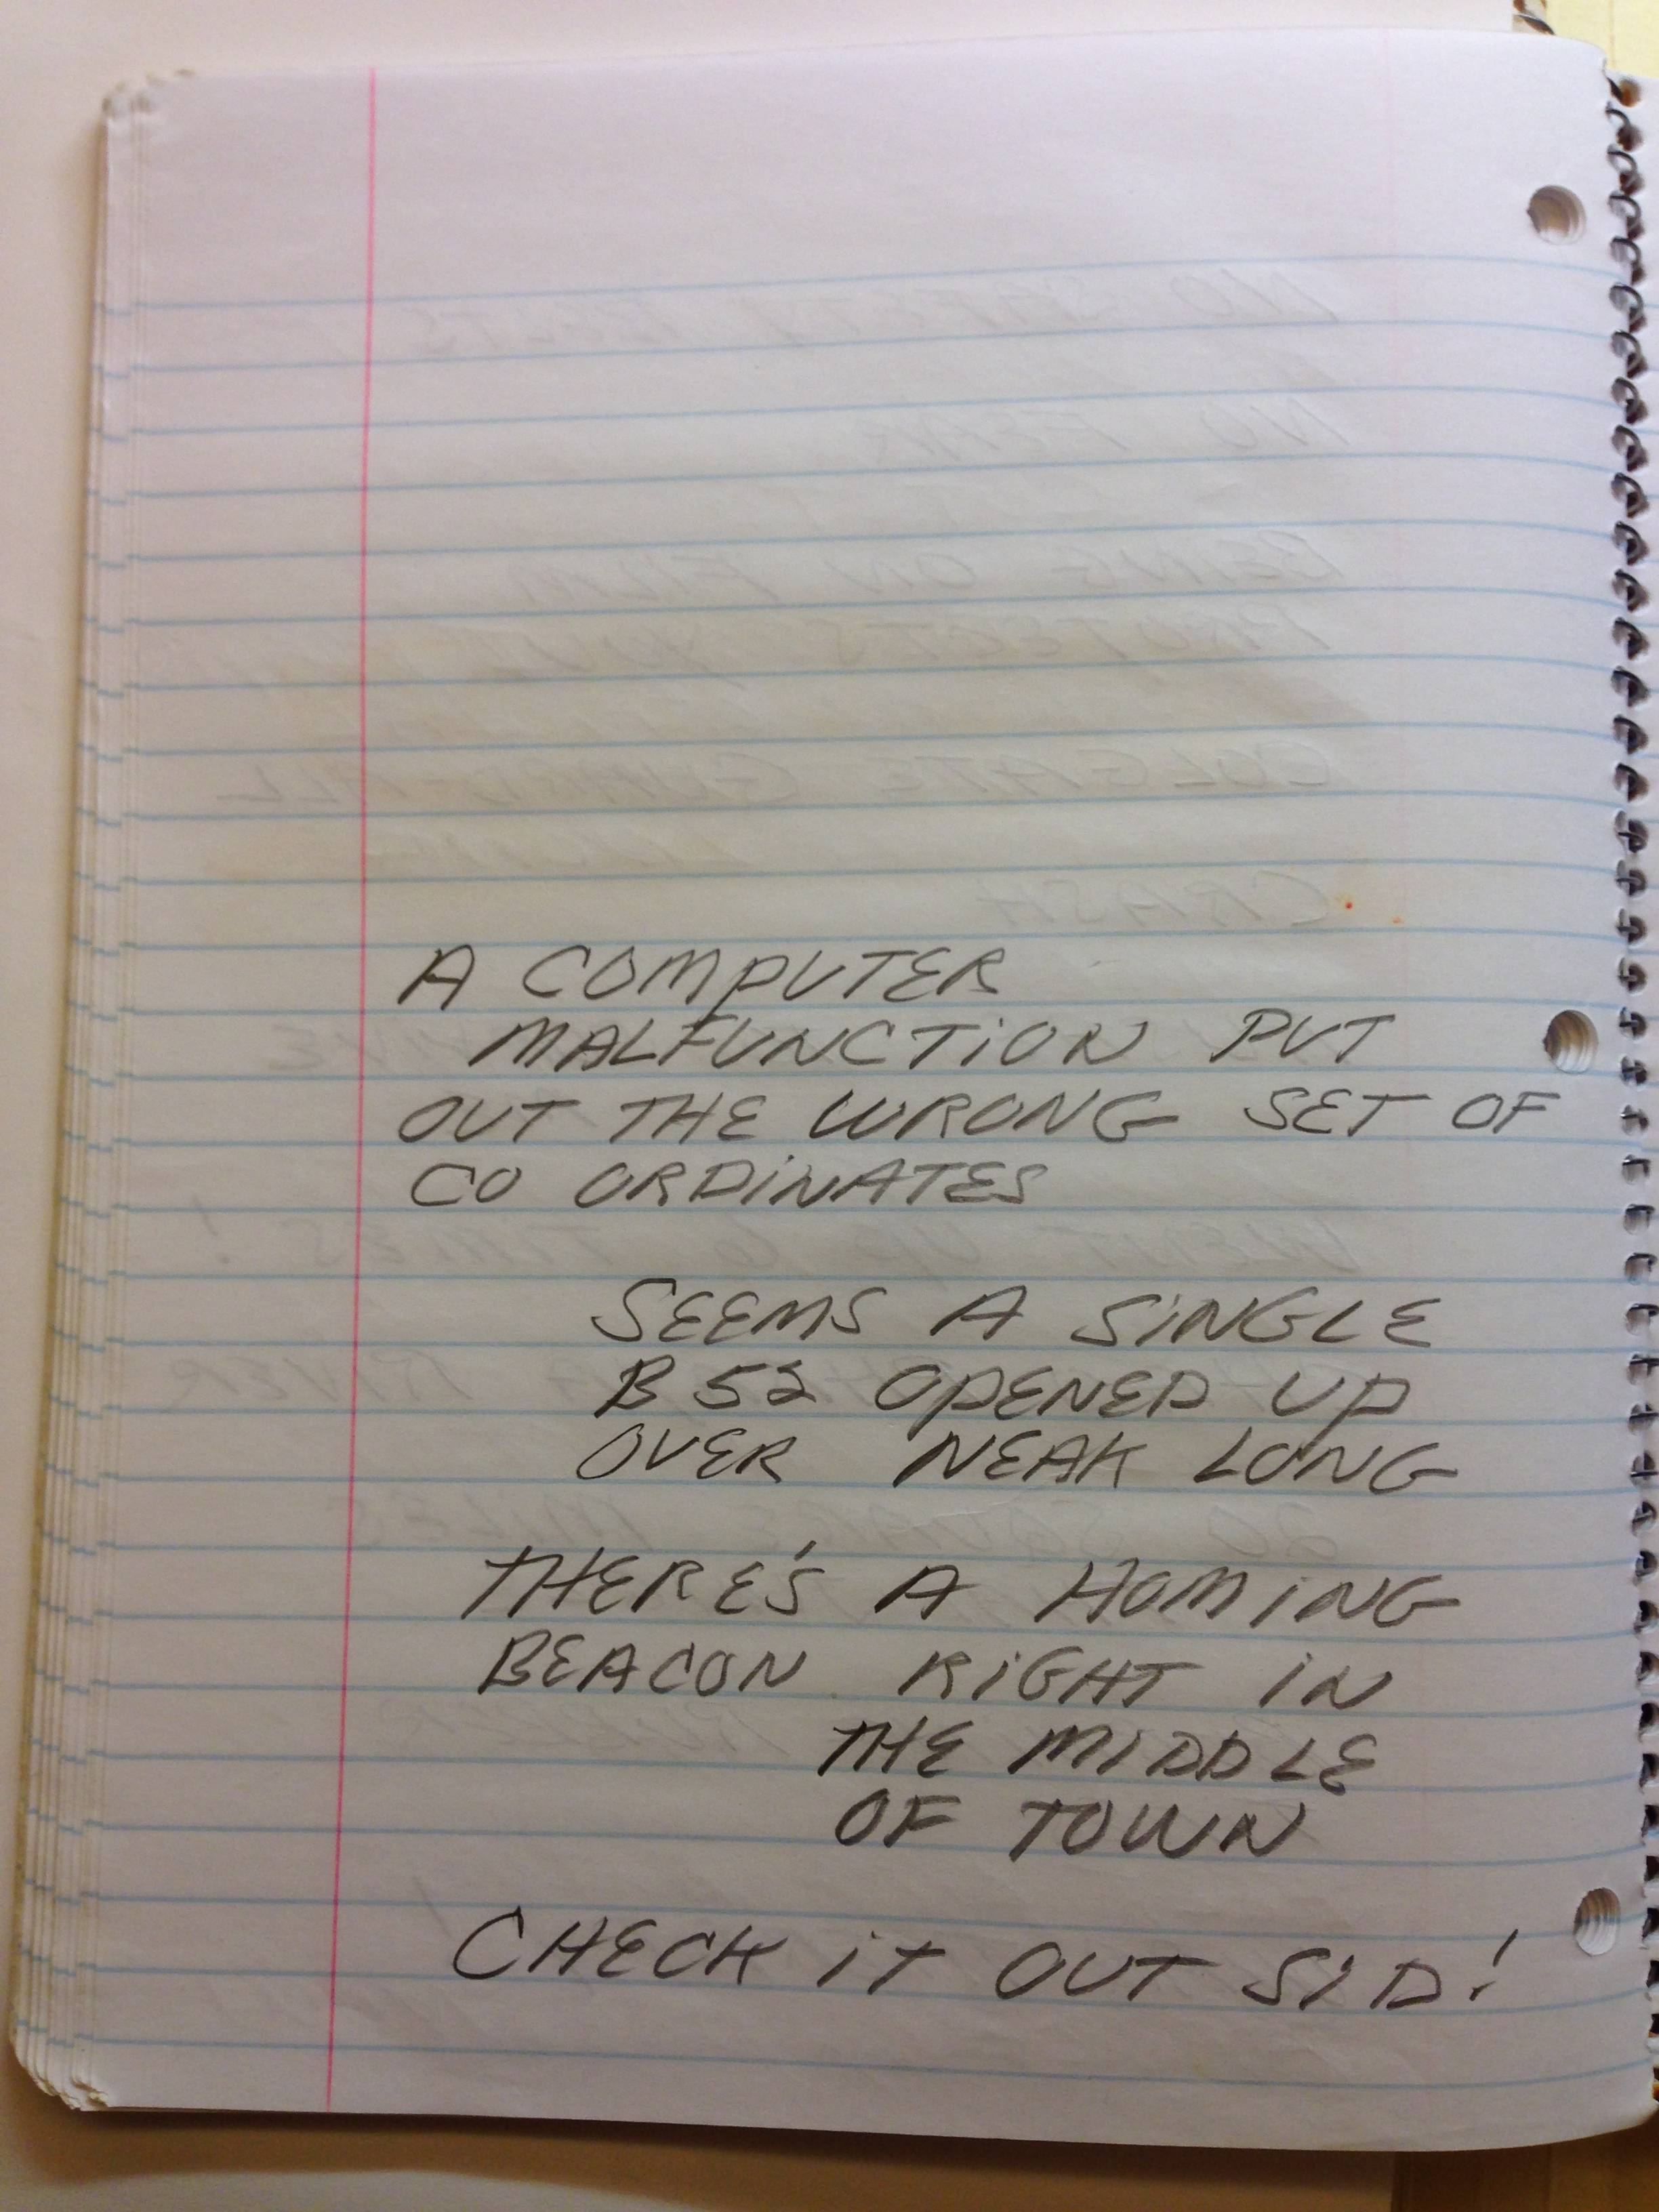 A COMPUTER
MALFUNCTION PUT
OUT THE WRONG SET OF
CO ORDINATES
SEEMS A SINGLE
B 52 OPENED UP
OVER NEAK LONG
THERE'S A HOMING
BEACON RIGHT IN
THE MIDDLE
OF TOWN
CHECK IT OUT SID!